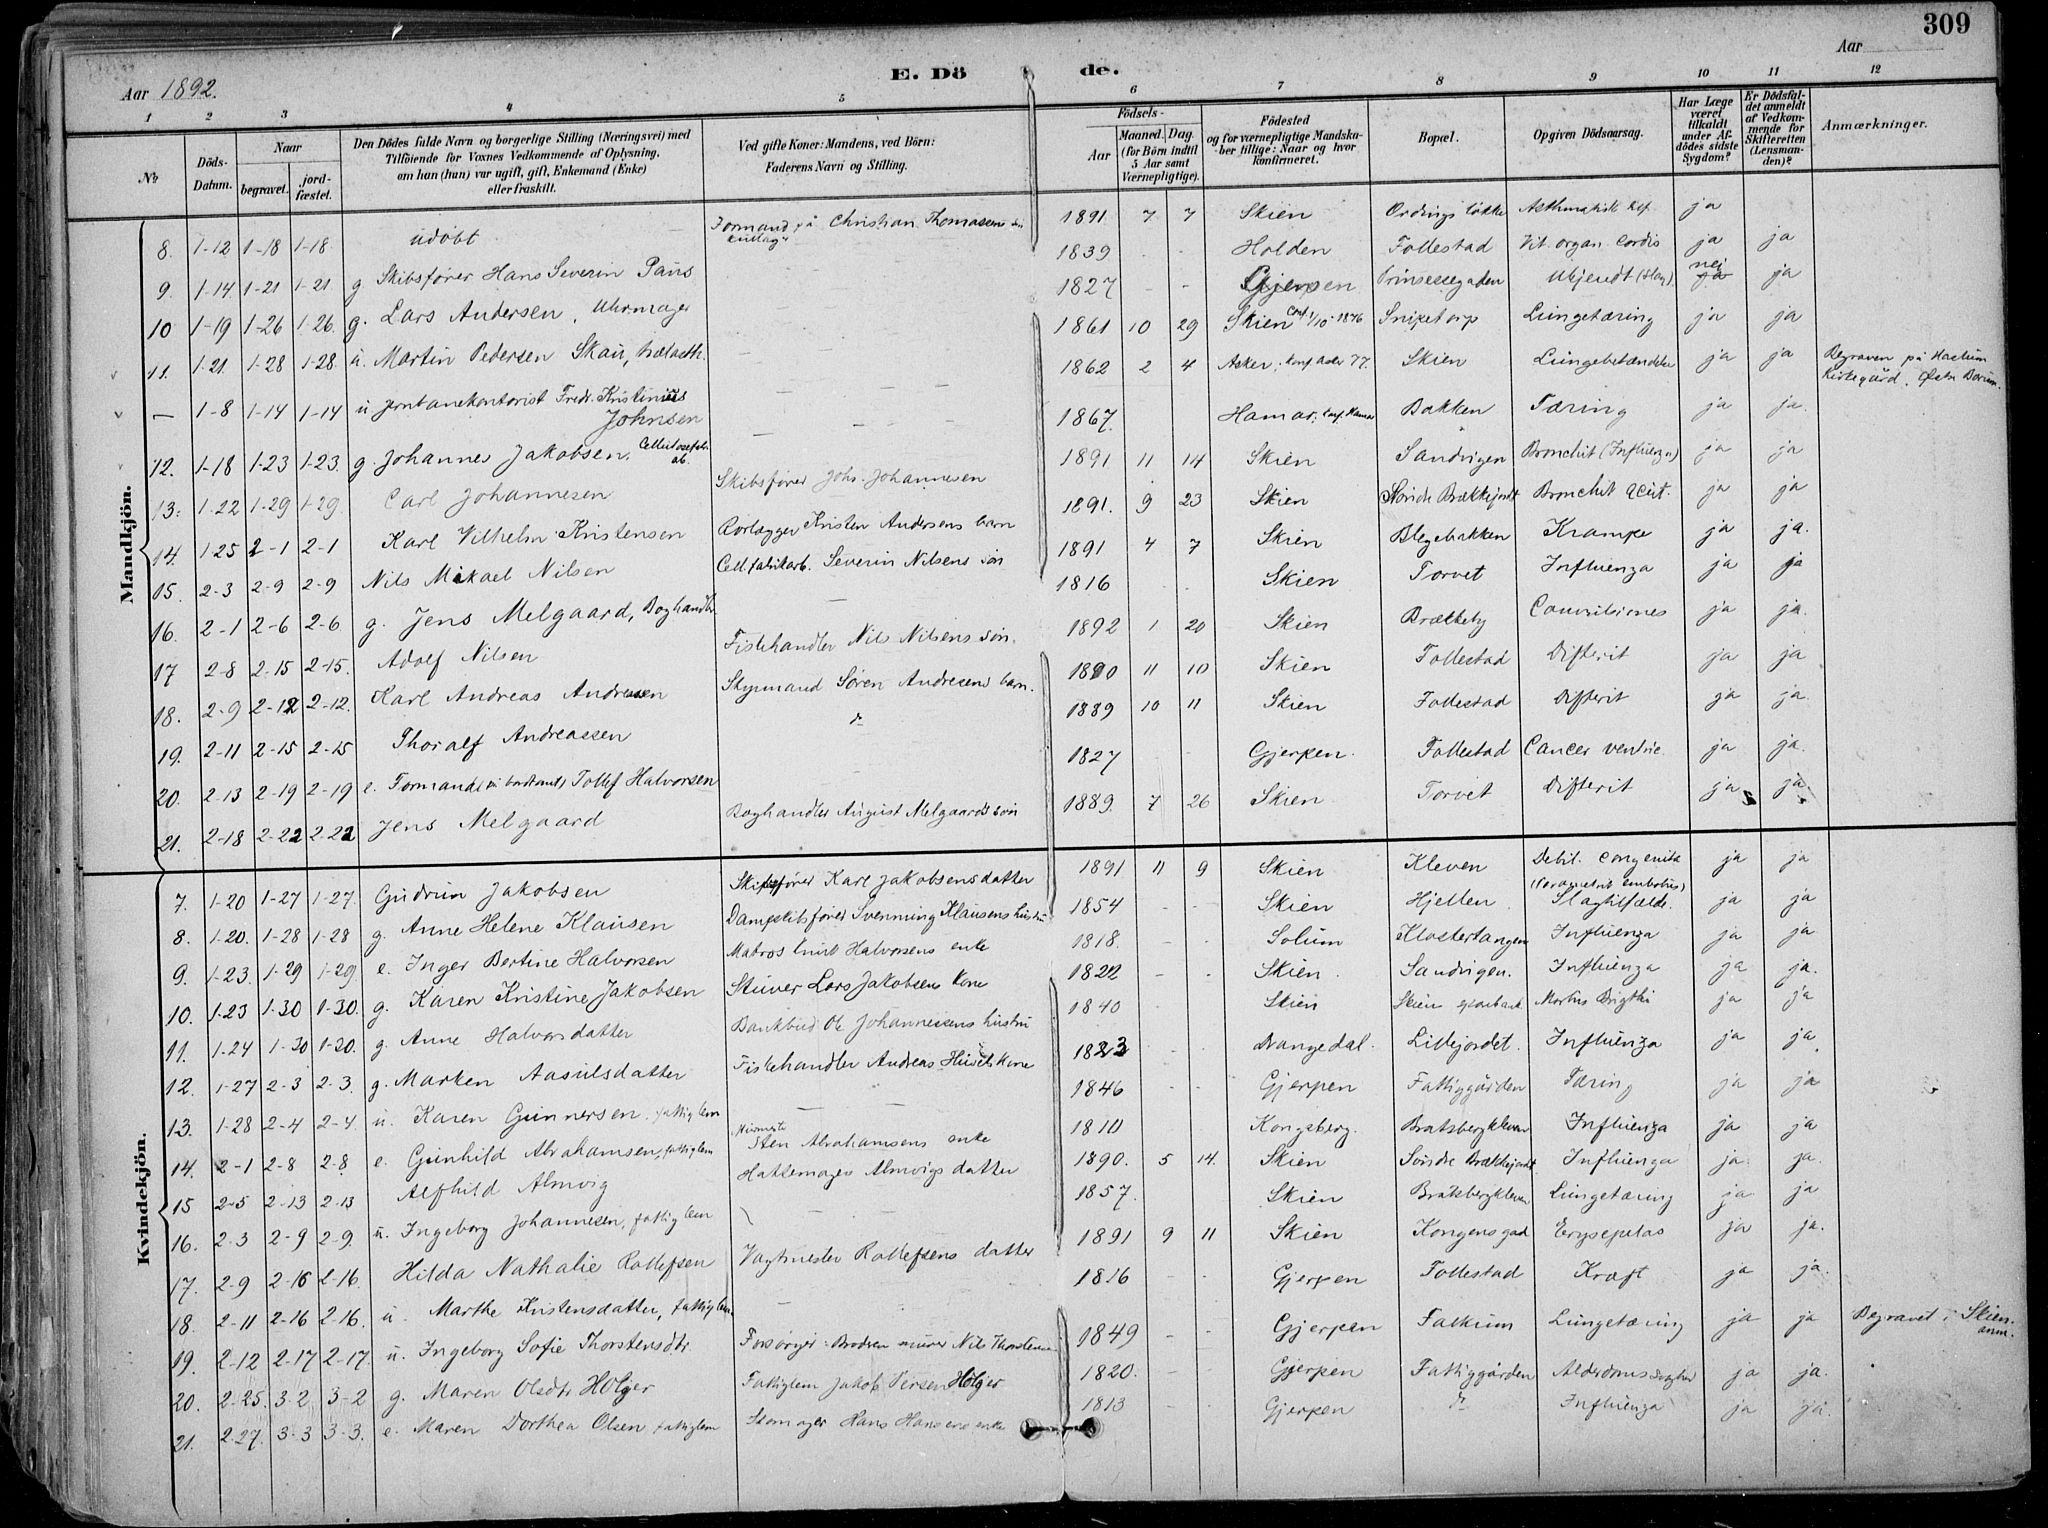 309
Aar 1892.
E. Dö de.
Aar
1 2 3 4 5 6 7 8 9 10 11 12
No
Döds-Datum.
Naar
begravet.
jord-fæstet.
Den Dödes fulde Navn og borgerlige Stilling (Næringsvei) med Tilföiende for Voxnes Vedkommende af Oplysning, om han (hun) var ugift, gift, Enkemand (Enke) eller fraskilt.
Ved gifte Koner: Mandens, ved Börn: Faderens Navn og Stilling.
Födsels-
Aar
Maaned. Dag.
(for Börn indtil 5 Aar samt Værnepligtige).
Födested og for værnepligtige Mandskaber tillige: Naar og hvor konfirmeret.
Bopæl.
Opgiven Dödsaarsag.
Har Læge været tilkaldt under Afdödes sidste Sygdom?
Er Dödsfaldet anmeldt af Vedkommende for Skifteretten (Lensmanden)?
Anmærkninger.
Mandkjön.
8. 1-12 1-18 1-18 udøbt Formand på Christian Thomasens 1891 7 7 Skien løkke ja
9. 1-14 1-21 1-21 g Skibsfører Hans Severin Paus 1839 - - Holden Follestad Vit. organ. Cordis ja ja
10 1-19 1-26 1-26. g. Lars Andersen, Uhrmager 1827 - - Gjerpen Prinsessegaden Ubjendt (slag) nej ja
11. 1-21. 1-28 1-28. u. Martin Pedersen Skau, 1861 10 29 Skien Conf. 1/10-1876 Snipetorp Lungetæring ja ja
— 1-8 1-14 1-14 u Jernbanekontorist Fredr. Kristinius Johnsen 1862 2 4 Asker, konf Asker 77. Skien Lungebetændelse ja ja Begraven på Haslum Kirkegård, Østre Bærum.
12. 1-18 1-23 1-23. g. Johannes Jakobsen, 1867. Hamar, konf. Hamar Bakken Tæring ja ja.
13. 1-22 1-29 1-29. Carl Johannesen Skibsfører Johs. Johannesen 1891 11 14 Skien Sandvigen Bronchit (Influenza) ja ja
14. 1-25 2-1 2-1 Karl Vilhelm Kristensen Rørlægger Kristen Andersens barn 1891. 9 23 Skien Søndre Brækkejordet Bronchit acut. ja ja
15. 2-3 2-9 2-9 Nils Mikael Nilsen Cell.fabrikarb. Severin Nilsens søn 1891 4 7 Skien Blegebakken Krampe ja ja.
16. 2-1 2-6 2-6 g. Jens Melgaard, Boghandler 1816 Skien Torvet Influenza ja ja
17 2-8 2-15 2-15. Adolf Nilsen Fiskehandler Nils Nilsens søn. 1892 1 20 Skien Brækkeby Convulsiones ja ja.
18. 2-9 2-12 2-12. Karl Andreas Andreasen Styrmand Søren Andresens barn. 1890 11 10 Skien Follestad Difterit ja ja
19. 2-11 2-15 2-15 Thoralf Andreassen 1889 10 11 Skien Follestad Difterit ja ja.
20. 2-13 2-19 2-19 e. Formand Tollef Halvorsen 1827 Gjerpen. Follestad Cancer ventric. ja ja.
21. 2-18 2-22 2-22 Jens Melgaard Boghandler August Melgaards søn 1889. 7 26 Skien Torvet Difterit ja ja
Kvindekjön.
7. 1-20 1-27 1-27. Gudrun Jakobsen Skibsfører Karl Jakobsens datter 1891 11 9 Skien Kleven Debil. congenita ja ja
8. 1-20. 1-28 1-28 g. Anne Helene Klausen Dampskibsfører Svenning Klausens hustru 1854 - - Skien Hjellen (Parametrit embolus) Slagtilfælde. ja ja
9. 1-23. 1-29 1-29. e. Inger Bertine Halvorsen Matros Knut Halvorsens enke 1818. - - Solum Klostertangen Influenza ja ja
10. 1-23 1-30 1-30. g. Karen Kristine Jakobsen Stuver Lars Jakobsens kone 1822 - - Skien. Sandvigen. Influenza ja ja.
11. 1-24 1-30 1-30. g. Anne Halvorsdatter Bankbud Ole Johannessens hustru 1840 Skien Skien Morbus Brigthi ja ja
12. 1-27 2-3 2-3. g. Marken Aasulsdatter Fiskehandler Andreas kone 1823 - - Drangedal. Lillejordet. Influenza ja ja
13. 1-28 2-4 2-4. u. Karen Gunnersen. fattiglem 1846 - - Gjerpen Fattiggården Tæring ja ja
14. 2-1 2-8 2-8 e. Gunhild Abrahamsen, fattiglem Sten Abrahamsens enke 1810 Kongsberg. Bratsbergkleven Influenza ja ja
15 2-5 2-13 2-13 Alfhild Almvig Hattemager Almvigs datter 1890. 5 14. Skien Søndre Brækkejordet Influenza ja ja.
16. 2-3 2-9 2-9. u. Ingeborg Johannesen, fattiglem 1857. Skien Bratsbergkleven Lungetæring ja ja
17. 2-9 2-16 2-16. Hilda Nathalie Rollefsen Vagtmester Rollefsens datter 1891 9 11 Skien Kongensgad Erysipelas ja ja.
18. 2-11 2-16 2-16. u. Marthe Kristensdatter, fattiglem 1816 - - Gjerpen Follestad Kræft ja ja.
19. 2-12 2-17 2-17. u. Ingeborg Sofie Thorstensdtr. Forsørger: Broderen murer Nils Thorstensen 1849 - - Gjerpen Falkum Lungetæring ja ja Begravet i Skien. anm.
20. 2-25. 3-2 3-2 g. Maren Olsdtr Holger Fattiglem Jakob Persen Holger 1820. Gjerpen Fattiggården Alderdomssvaghed ja ja.
21. 2-27. 3-3 3-3. e. Maren Dorthea Olsen fattiglem Skomager Hans Hansens enke 1813 Gjerpen Influenza ja ja.